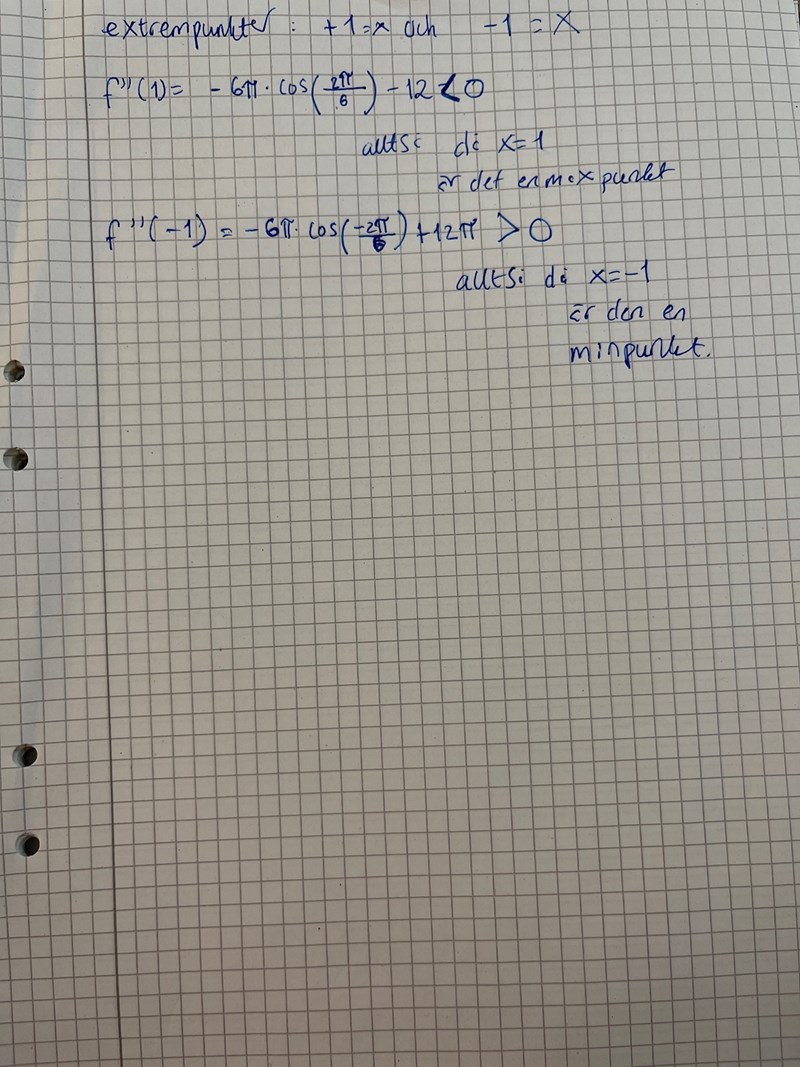 extrempunkter : +1=x och -1=x
f''(1)= -6π·cos(2π/6)-12<0
alltså då x=1
är det en max punkt
f''(-1) = -6π·cos(-2π/6)+12π >0
alltså då x=-1
är den en
minpunkt.